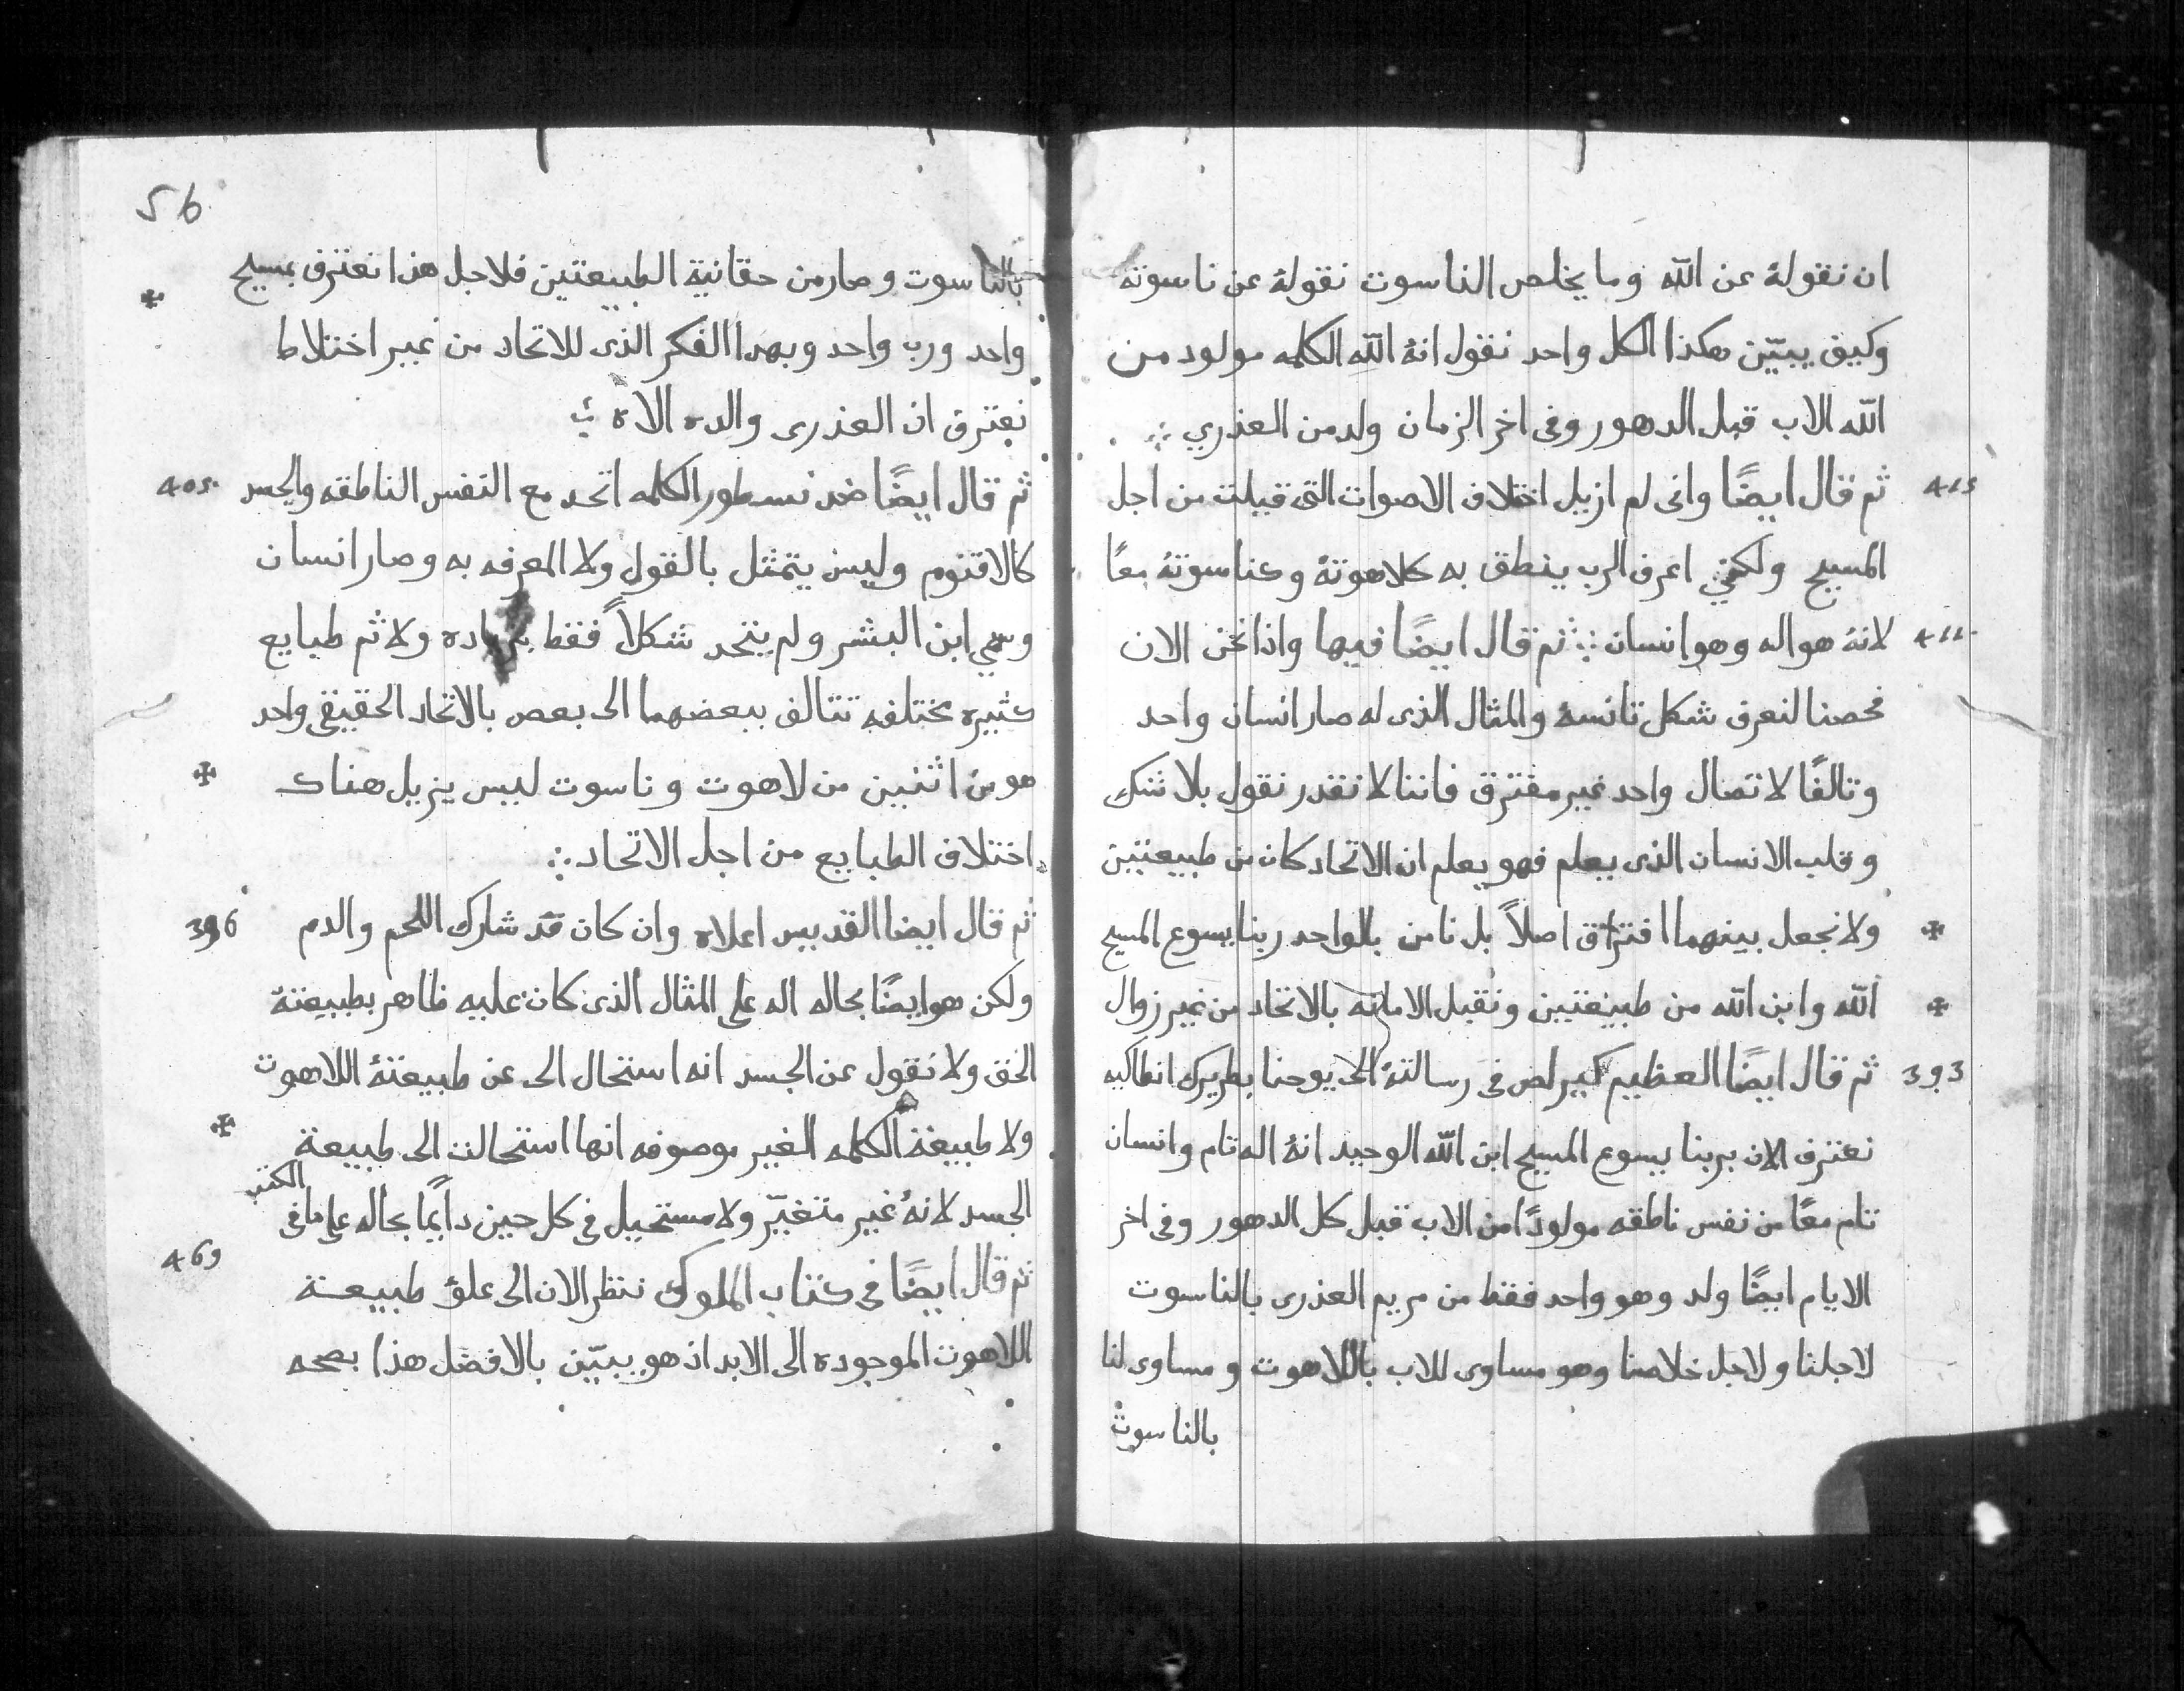 ان نقولهٔ عن الله وما يخلص الناسوت نقولهٔ عن ناسوته
وكيف يبيّن هكذا الكل واحد نقول انهٔ الله الكلمه مولود من
الله الاب قبل الدهور وفى اخر الزمان ولد من العذري ∴
415 ثم قال ايضًا وانى لم ازيل اختلاف الاصوات التى قيلت من اجل
المسيح ولكنني اعرف الرب ينطق به كلاهوتهٔ وكناسوتهٔ معًا
411 لانهٔ هو اله وهو انسان ∴ ثم قال ايضًا فيها واذا نحن الان
فحصنا لنعرف شكل تانسهٔ والمثال الذى له صار انسان واحد
وتالفًا لاتصال واحد غير مفترق فاننا لا نقدر نقول بلا شك
وقلب الانسان الذى يعلم فهو يعلم ان الاتحاد كان من طبيعتين
✠ ولا نجعل بينهما افتراق اصلاً بل نامن بالواحد ربنا يسوع المسيح
✠ الله وابن الله من طبيعتين ونقبل الامانه بالاتحاد من غير زوال
393 ثم قال ايضًا العظيم كيرلص فى رسالتهٔ الى يوحنا بطريرك انطاكيه
نعترف الان بربنا يسوع المسيح ابن الله الوحيد انهٔ اله تام وانسان
تام معًا من نفس ناطقه مولودًا من الاب قبل كل الدهور وفى اخر
الايام ايضًا ولد وهو واحد فقط من مريم العذرى بالناسوت
لاجلنا ولاجل خلاصنا وهو مساوى للاب باللاهوت ومساوى لنا
بالناسوت
56
بالناسوت وصار من حقانية الطبيعتين فلاجل هذا نعترف بمسيح
✠
واحد ورب واحد وبهدا الفكر الذى للاتحاد من غير اختلاط
نعترف ان العذرى والده الاه
405 ثم قال ايضًا ضد نسطور الكلمه اتحد مع النفس الناطقه والجسد
كالاقنوم وليس يتمثل بالقول ولا المعرفه به وصار انسان
وسمي ابن البشر ولم يتحد شكلاً فقط ولا ثم طبايع
كثيره مختلفه تتالف ببعضهما الى بعض بالاتحاد الحقيقى واحد
✠ هو من اثنين من لاهوت وناسوت ليس يزيل هناك
اختلاف الطبايع من اجل الاتحاد ∴
396 ثم قال ايضا القديس اعلاه وان كان قد شارك اللحم والدم
ولكن هو ايضًا بحاله اله على المثال الذى كان عليه ظاهر بطبيعتهٔ
الحق ولا نقول عن الجسد انه استحال الى عن طبيعتهٔ اللاهوت
✠ ولا طبيعة الكلمه الغير موصوفه انها استحالت الى طبيعة
الجسد لانهٔ غير متغيّر ولا مستحيل فى كل حين دايمًا بحاله على ما فى الكتب
469 ثم قال ايضًا فى كتاب الملوك ننظر الان الى علوّ طبيعة
اللاهوت الموجوده الى الابد اذ هو يبيّن بالافضل هذا بصحه